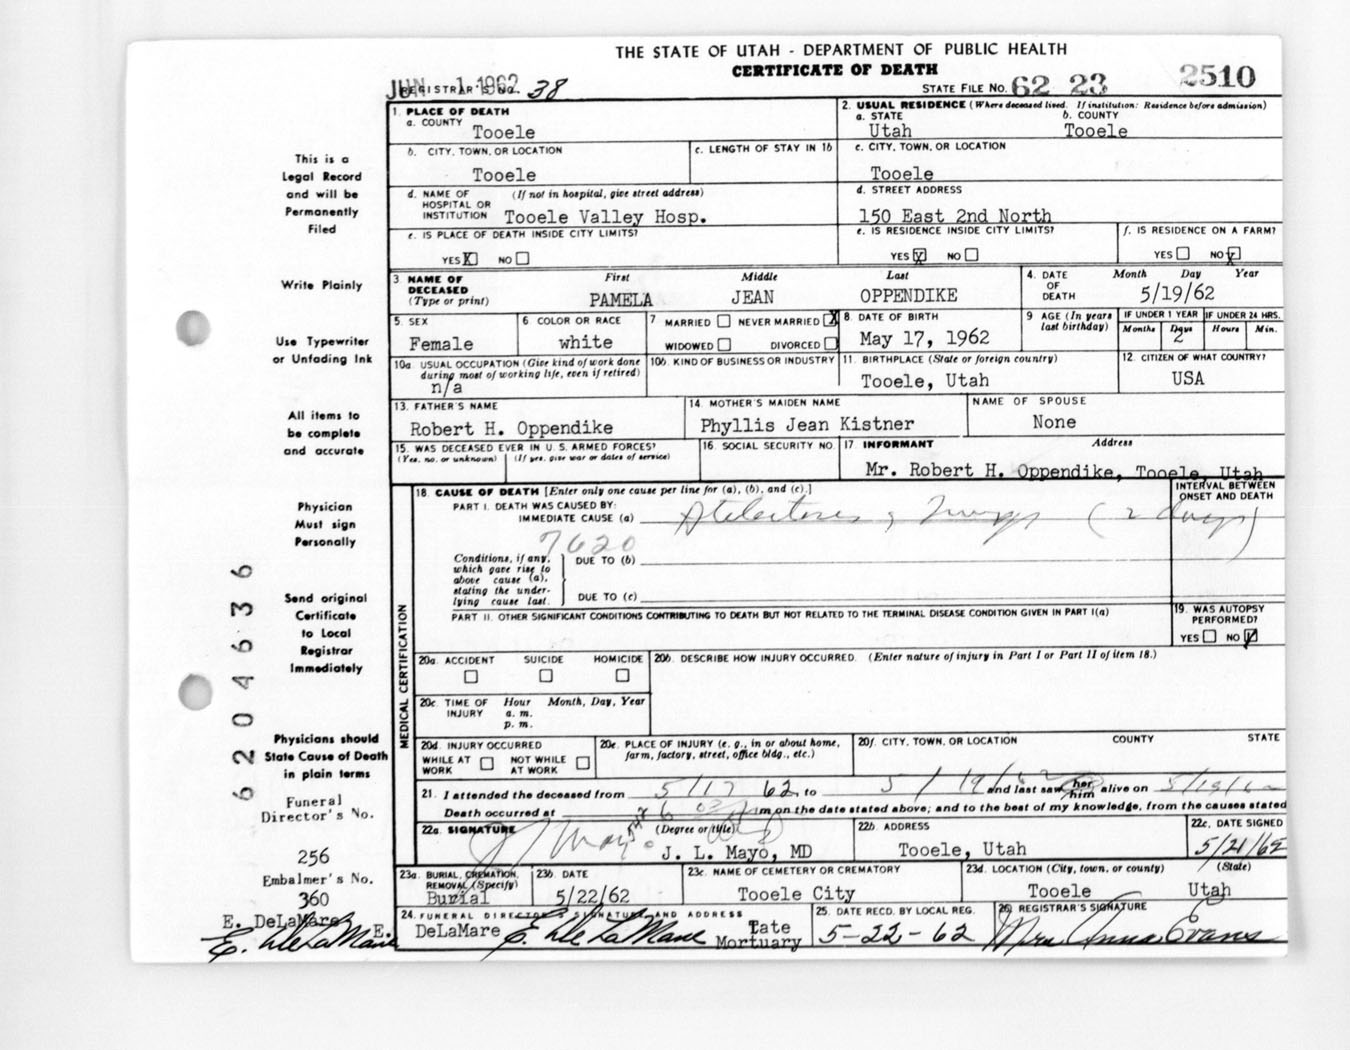 THE STATE OF UTAH - DEPARTMENT OF PUBLIC HEALTH
CERTIFICATE OF DEATH
JUN 1 1962
REGISTRAR'S NO. 38
STATE FILE NO. 62 23 2510
This is a
Legal Record
and will be
Permanently
Filed
Write Plainly
Use Typewriter
or Unfading Ink
All items to
be complete
and accurate
Physician
Must sign
Personally
Send original
Certificate
to Local
Registrar
Immediately
Physicians should
State Cause of Death
in plain terms
Funeral
Director's No.
256
Embalmer's No.
360
E. DeLaMare
E. DeLaMare
6204636
1. PLACE OF DEATH
a. COUNTY Tooele
2. USUAL RESIDENCE (Where deceased lived. If institution: Residence before admission)
a. STATE Utah
b. COUNTY Tooele
b. CITY, TOWN, OR LOCATION
Tooele
c. LENGTH OF STAY IN 1b
c. CITY, TOWN, OR LOCATION
Tooele
d. NAME OF HOSPITAL OR INSTITUTION (If not in hospital, give street address)
Tooele Valley Hosp.
d. STREET ADDRESS
150 East 2nd North
e. IS PLACE OF DEATH INSIDE CITY LIMITS?
YES X NO
e. IS RESIDENCE INSIDE CITY LIMITS?
YES X NO
f. IS RESIDENCE ON A FARM?
YES NO X
3. NAME OF DECEASED (Type or print)
First Middle Last
PAMELA JEAN OPPENDIKE
4. DATE OF DEATH Month Day Year
5/19/62
5. SEX
Female
6 COLOR OR RACE
white
7 MARRIED NEVER MARRIED X
WIDOWED DIVORCED
8. DATE OF BIRTH
May 17, 1962
9 AGE (In years last birthday)
IF UNDER 1 YEAR IF UNDER 24 HRS.
Months Days Hours Min.
2
10a. USUAL OCCUPATION (Give kind of work done during most of working life, even if retired)
n/a
10b. KIND OF BUSINESS OR INDUSTRY
11. BIRTHPLACE (State or foreign country)
Tooele, Utah
12. CITIZEN OF WHAT COUNTRY?
USA
13. FATHER'S NAME
Robert H. Oppendike
14. MOTHER'S MAIDEN NAME
Phyllis Jean Kistner
NAME OF SPOUSE
None
15. WAS DECEASED EVER IN U.S. ARMED FORCES?
(Yes, no, or unknown) (If yes, give war or dates of service)
16. SOCIAL SECURITY NO.
17 INFORMANT Address
Mr. Robert H. Oppendike, Tooele, Utah
MEDICAL CERTIFICATION
18. CAUSE OF DEATH [Enter only one cause per line for (a), (b), and (c).]
INTERVAL BETWEEN ONSET AND DEATH
PART I. DEATH WAS CAUSED BY:
IMMEDIATE CAUSE (a) (2 days)
7620
Conditions, if any, which gave rise to above cause (a), stating the underlying cause last.
DUE TO (b)
DUE TO (c)
PART II. OTHER SIGNIFICANT CONDITIONS CONTRIBUTING TO DEATH BUT NOT RELATED TO THE TERMINAL DISEASE CONDITION GIVEN IN PART I(a)
19. WAS AUTOPSY PERFORMED?
YES NO
20a. ACCIDENT SUICIDE HOMICIDE
20b. DESCRIBE HOW INJURY OCCURRED. (Enter nature of injury in Part I or Part II of item 18.)
20c. TIME OF INJURY Hour Month, Day, Year
a. m.
p. m.
20d. INJURY OCCURRED
WHILE AT WORK NOT WHILE AT WORK
20e. PLACE OF INJURY (e. g., in or about home, farm, factory, street, office bldg., etc.)
20f. CITY, TOWN, OR LOCATION COUNTY STATE
21. I attended the deceased from 5/17 62, to 5/19/62 and last saw her him alive on 5/19/62
Death occurred at m on the date stated above; and to the best of my knowledge, from the causes stated
22a. SIGNATURE (Degree or title)
J. L. Mayo, MD
22b. ADDRESS
Tooele, Utah
22c. DATE SIGNED
5/21/62
23a. BURIAL, CREMATION, REMOVAL (Specify)
Burial
23b. DATE
5/22/62
23c. NAME OF CEMETERY OR CREMATORY
Tooele City
23d. LOCATION (City, town, or county) (State)
Tooele Utah
24. FUNERAL DIRECTOR'S SIGNATURE AND ADDRESS
E. DeLaMare E. DeLaMare Tate Mortuary
25. DATE RECD. BY LOCAL REG.
5-22-62
26. REGISTRAR'S SIGNATURE
Mrs Anna Evans